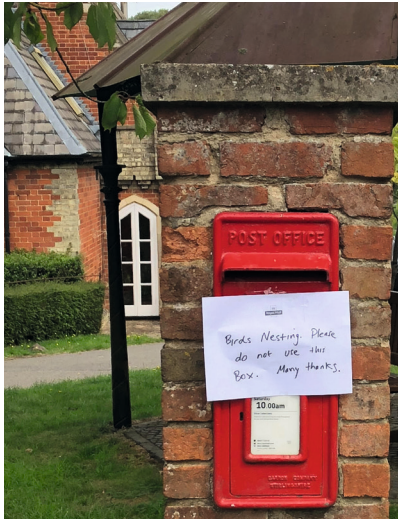 POST OFFICE
Birds Nesting. Please
do not use this
Box. Many thanks.
Saturday
10:00am